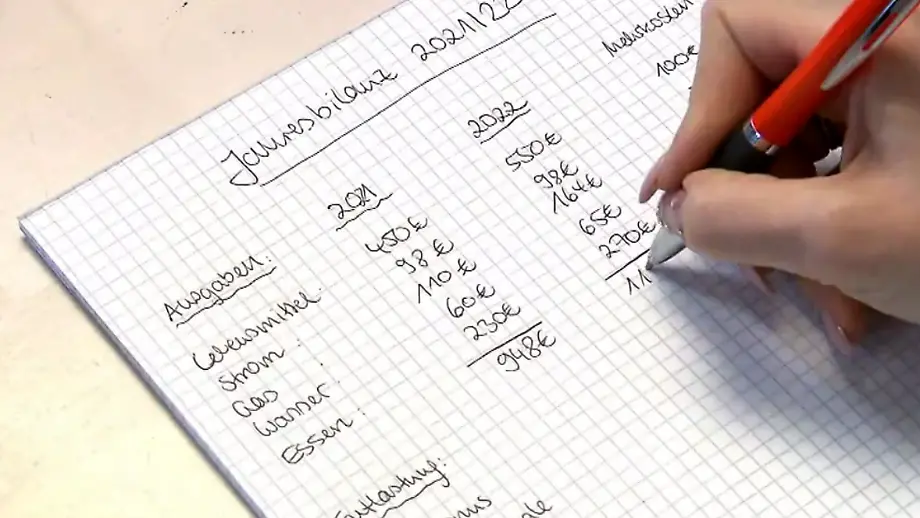 Jahresbilanz 2021/22
Mehrkosten
2021 2022
Ausgaben:
Lebensmittel: 450€ 550€ 100€
Strom: 98€ 98€
Gas: 110€ 164€
Wasser: 60€ 65€
Essen: 230€ 270€
948€ 11
Entlastung: